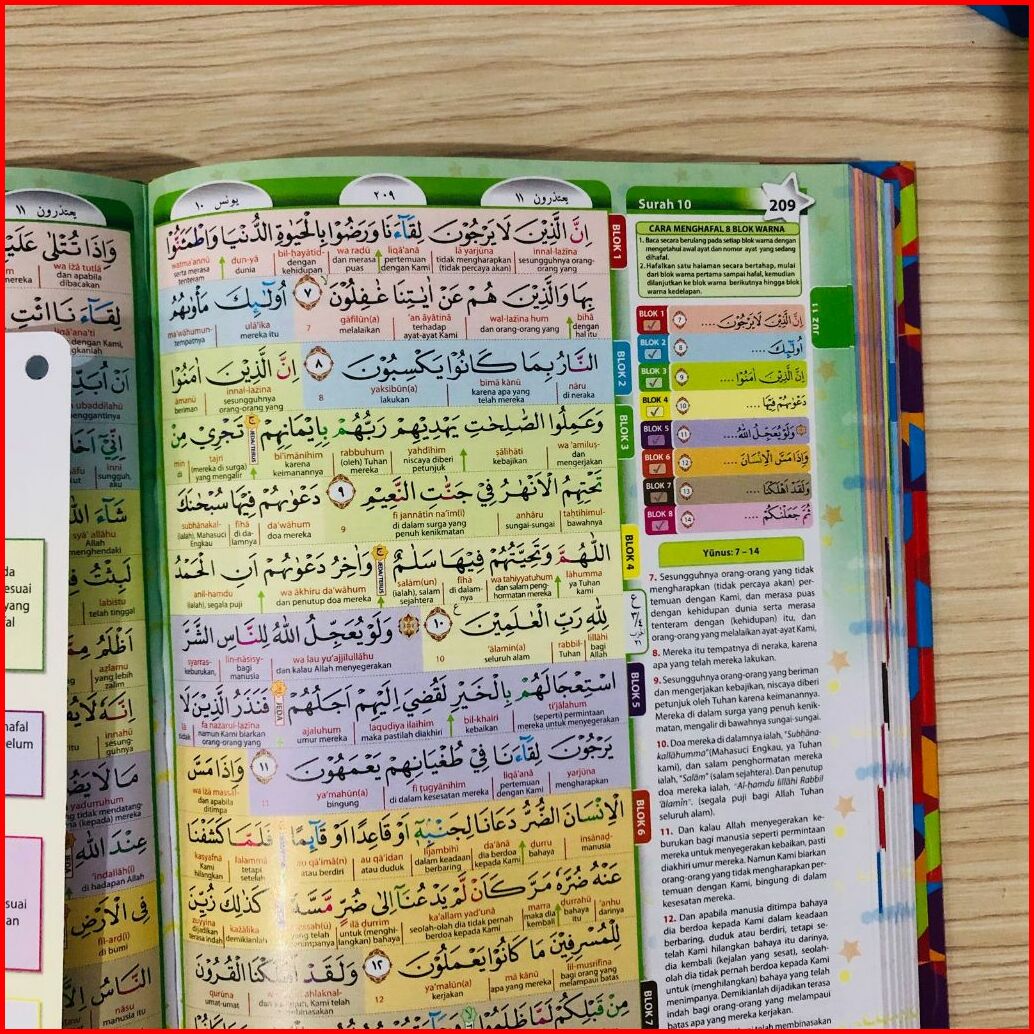 يعتذرون ١١
وَاِذَا تُتْلٰى عَلَيْ
wa iżā tutlā
dan apabila
dibacakan
لِقَاۤءَنَا ائْتِ
اَنْ اُبَدِّ
اِنِّيْٓ اَخَا
inni
sungguh,
aku
شَاۤءَ اللّٰ
syā' allāhu
Allah
menghendaki
لَبِثْتُ
labistu
telah tinggal
اَظْلَمُ مِمَّ
azlamu
yang lebih
zalim
اِنَّهٗ لَا يُفْ
innahū
sesung-
guhnya
مَا لَا يَضُ
عِنْدَ اللّٰهِ
'indallāh(i)
di hadapan Allah
فِى الْاَرْضِ
fil-arḍ(i)
di bumi
النَّاسُ اِلَّآ
nāsu
manusia itu
يونس ١٠
٢٠٩
يعتذرون ١١
اِنَّ الَّذِيْنَ لَا يَرْجُوْنَ لِقَاۤءَنَا وَرَضُوْا بِالْحَيٰوةِ الدُّنْيَا وَاطْمَـَٔنُّوْا
innal-lażīna lā yarjūna liqā'anā wa raḍū bil-ḥayātid- dun-yā waṭma'annū
sesungguhnya orang-orang yang tidak mengharapkan (tidak percaya akan) pertemuan dengan Kami dan merasa puas dengan kehidupan dunia serta merasa tenteram
بِهَا وَالَّذِيْنَ هُمْ عَنْ اٰيٰتِنَا غٰفِلُوْنَ ۙ ٧ اُولٰۤىِٕكَ مَأْوٰىهُمُ
bihā wal-lażīna hum 'an āyātinā gāfilūn(a) 7 ulā'ika ma'wāhumun-
dengan hal itu dan orang-orang yang terhadap ayat-ayat Kami melalaikan mereka itu tempatnya
النَّارُ بِمَا كَانُوْا يَكْسِبُوْنَ ٨ اِنَّ الَّذِيْنَ اٰمَنُوْا
nāru bimā kānū yaksibūn(a) 8 innal-lażīna āmanū
di neraka karena apa yang telah mereka lakukan sesungguhnya orang-orang yang beriman
وَعَمِلُوا الصّٰلِحٰتِ يَهْدِيْهِمْ رَبُّهُمْ بِاِيْمَانِهِمْۚ تَجْرِيْ مِنْ
wa 'amiluṣ- ṣāliḥāti yahdīhim rabbuhum bi'īmānihim tajrī min
dan mengerjakan kebajikan niscaya diberi petunjuk (oleh) Tuhan mereka karena keimanannya (mereka di surga) yang mengalir di
تَحْتِهِمُ الْاَنْهٰرُ فِيْ جَنّٰتِ النَّعِيْمِ ٩ دَعْوٰىهُمْ فِيْهَا سُبْحٰنَكَ
taḥtihimul- anhāru fī jannātin na'īm(i) 9 da'wāhum fīhā subḥānakal-
bawahnya sungai-sungai di dalam surga yang penuh kenikmatan doa mereka di da-lamnya (ialah), Mahasuci Engkau
اللّٰهُمَّ وَتَحِيَّتُهُمْ فِيْهَا سَلٰمٌۚ وَاٰخِرُ دَعْوٰىهُمْ اَنِ الْحَمْدُ
lāhumma wa taḥiyyatuhum fīhā salām(un) wa ākhiru da'wāhum anil-ḥamdu
ya Tuhan Kami dan salam peng-hormatan mereka di dalam-nya (ialah), salam sejahtera dan penutup doa mereka (ialah), segala puji
لِلّٰهِ رَبِّ الْعٰلَمِيْنَ ١٠ وَلَوْ يُعَجِّلُ اللّٰهُ لِلنَّاسِ الشَّرَّ
lillāhi rabbil- 'ālamīn(a) 10 wa lau yu'ajjilullāhu lin-nāsisy- syarras-
bagi Allah Tuhan seluruh alam dan kalau Allah menyegerakan bagi manusia keburukan,
اسْتِعْجَالَهُمْ بِالْخَيْرِ لَقُضِيَ اِلَيْهِمْ اَجَلُهُمْۗ فَنَذَرُ الَّذِيْنَ لَا
ti'jālahum bil-khairi laquḍiya ilaihim ajaluhum fa nażarul-lażīna lā
(seperti) permintaan mereka untuk menyegerakan kebaikan, maka pastilah diakhiri umur mereka namun Kami biarkan orang-orang yang tidak
يَرْجُوْنَ لِقَاۤءَنَا فِيْ طُغْيَانِهِمْ يَعْمَهُوْنَ ١١ وَاِذَا مَسَّ
yarjūna liqā'anā fī ṭugyānihim ya'mahūn(a) 11 wa iżā massal-
mengharapkan pertemuan dengan Kami di dalam kesesatan mereka bingung dan apabila ditimpa
الْاِنْسَانَ الضُّرُّ دَعَانَا لِجَنْۢبِهٖٓ اَوْ قَاعِدًا اَوْ قَاۤىِٕمًاۚ فَلَمَّا كَشَفْنَا
insānaḍ- ḍurru da'ānā lijambihī au qā'idan au qā'imā(n) falammā kasyafnā
manusia bahaya dia berdoa kepada Kami dalam keadaan berbaring atau duduk atau berdiri tetapi setelah Kami hilangkan
عَنْهُ ضُرَّهٗ مَرَّ كَاَنْ لَّمْ يَدْعُنَآ اِلٰى ضُرٍّ مَّسَّهٗۗ كَذٰلِكَ زُيِّنَ
'anhu ḍurrahū marra ka'allam yad'unā ilā ḍurrim massah(ū) każālika zuyyina
darinya bahaya itu maka dia kembali seolah-olah dia tidak pernah berdoa kepada Kami untuk (menghi-langkan) bahaya yang telah menimpanya demikianlah dijadikan terasa indah
لِلْمُسْرِفِيْنَ مَا كَانُوْا يَعْمَلُوْنَ ١٢ وَلَقَدْ اَهْلَكْنَا الْقُرُوْنَ
lil-musrifīna mā kānū ya'malūn(a) 12 ahlaknal- qurūna
bagi orang yang melampaui batas apa yang mereka kerjakan Kami telah binasakan umat-umat
مِنْ قَبْلِكُمْ لَمَّا ظَلَمُوْا
BLOK 1
BLOK 2
BLOK 3
BLOK 4
BLOK 5
BLOK 6
BLOK 7
Surah 10
209
CARA MENGHAFAL 8 BLOK WARNA
1. Baca secara berulang pada setiap blok warna dengan
mengetahui awal ayat dan nomor ayat yang sedang
dihafal.
2. Hafalkan satu halaman secara bertahap, mulai
dari blok warna pertama sampai hafal, kemudian
dilanjutkan ke blok warna berikutnya hingga blok
warna kedelapan.
JUZ 11
BLOK 1 ٧ اِنَّ الَّذِيْنَ لَا يَرْجُوْنَ ....
BLOK 2 ٨ اُولٰۤىِٕكَ ....
BLOK 3 ٩ اِنَّ الَّذِيْنَ اٰمَنُوْا ....
BLOK 4 ١٠ دَعْوٰىهُمْ فِيْهَا ....
BLOK 5 ١١ وَلَوْ يُعَجِّلُ اللّٰهُ ....
BLOK 6 ١٢ وَاِذَا مَسَّ الْاِنْسَانَ ....
BLOK 7 ١٣ وَلَقَدْ اَهْلَكْنَا ....
BLOK 8 ١٤ ثُمَّ جَعَلْنٰكُمْ ....
Yūnus: 7 – 14
7. Sesungguhnya orang-orang yang tidak
mengharapkan (tidak percaya akan) per-
temuan dengan Kami, dan merasa puas
dengan kehidupan dunia serta merasa
tenteram dengan (kehidupan) itu, dan
orang-orang yang melalaikan ayat-ayat Kami,
8. Mereka itu tempatnya di neraka, karena
apa yang telah mereka lakukan.
9. Sesungguhnya orang-orang yang beriman
dan mengerjakan kebajikan, niscaya diberi
petunjuk oleh Tuhan karena keimanannya.
Mereka di dalam surga yang penuh kenik-
matan, mengalir di bawahnya sungai-sungai.
10. Doa mereka di dalamnya ialah, "Subḥāna-
kallāhumma" (Mahasuci Engkau, ya Tuhan
kami), dan salam penghormatan mereka
ialah, "Salām" (salam sejahtera). Dan penutup
doa mereka ialah, "Al-ḥamdu lillāhi Rabbil
'ālamīn". (segala puji bagi Allah Tuhan
seluruh alam).
11. Dan kalau Allah menyegerakan ke-
burukan bagi manusia seperti permintaan
mereka untuk menyegerakan kebaikan, pasti
diakhiri umur mereka. Namun Kami biarkan
orang-orang yang tidak mengharapkan per-
temuan dengan Kami, bingung di dalam
kesesatan mereka.
12. Dan apabila manusia ditimpa bahaya
dia berdoa kepada Kami dalam keadaan
berbaring, duduk atau berdiri, tetapi se-
telah Kami hilangkan bahaya itu darinya,
dia kembali (kejalan yang sesat), seolah-
olah dia tidak pernah berdoa kepada Kami
untuk (menghilangkan) bahaya yang telah
menimpanya. Demikianlah dijadikan terasa
indah bagi orang-orang yang melampaui
batas apa yang mereka kerjakan.